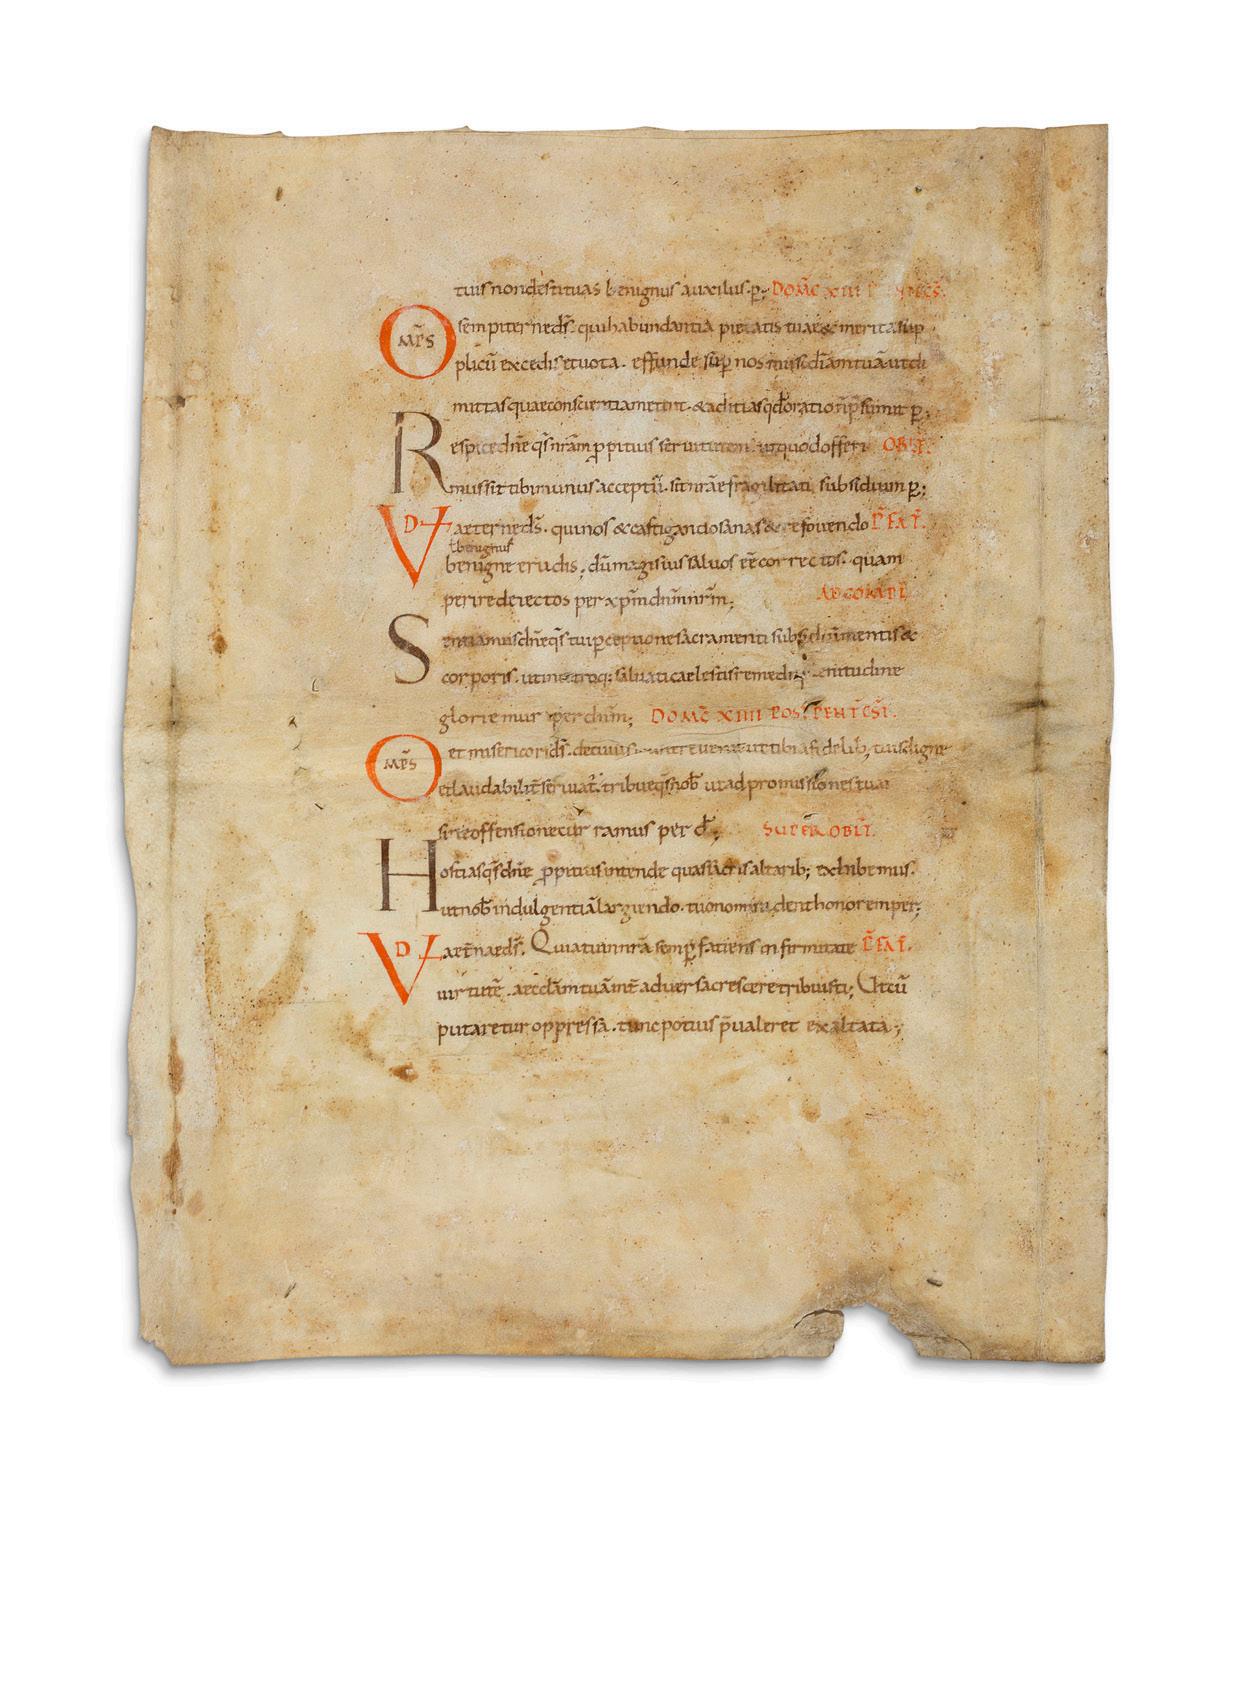 tuis non destituas benignus auxiliis. p̄; DOMC̄ XIII
OMP̄S sempiterne ds̄. qui habundantia pietatis tuae & merita sup
plicū excedis et uota. effunde sup̄ nos mis̄c̄diām tuā ut di
mittas quae conscientia metuit. & adicias qd̄ oratio n̄ p̄sumit p̄;
Respice dn̄e qs̄ nrām p̄pitius seruitutem ut quod offeri OBLT̄.
mus sit tibi munus acceptū. sit nrāe fragilitati subsidium p̄;
VD aeterne ds̄. qui nos & castigando sanas & refouendo P̄FAT̄.
ł benignus
benigne erudis; dū magis uis saluos eē correctos. quam
perire deiectos per xp̄m dn̄m nrm̄; AD COM̄PL̄
Sentiamus dn̄e qs̄ tui p̄ceptione sacramenti subsidiū mentis &
corporis. ut in utroq; saluati caelestis remedii plenitudine
gloriemur per dn̄m; DOMC̄ XIIII POST PENT̄CS̄T.
OMP̄S et misericors ds̄. de cuius munere uenit ut tibi a fidelib; tuis digne
et laudabilit̄ seruiat̄. tribue qs̄ nob̄ ut ad promissiones tuas
sine offensione curramus per d̄; SUPER OBLT̄.
Hostias qs̄ dn̄e p̄pitius intende quas sacris altarib; exhibemus.
ut nob̄ indulgentiā largiendo. tuo nomini dent honorem per;
VD aet̄nae ds̄. Quia tu in nrā semp̄ faciens infirmitate P̄FAT̄.
uirtutē. aecclām tuām int̄ aduersa crescere tribuisti; Ut cū
putaretur oppressa. tunc potius p̄ualeret exaltata;